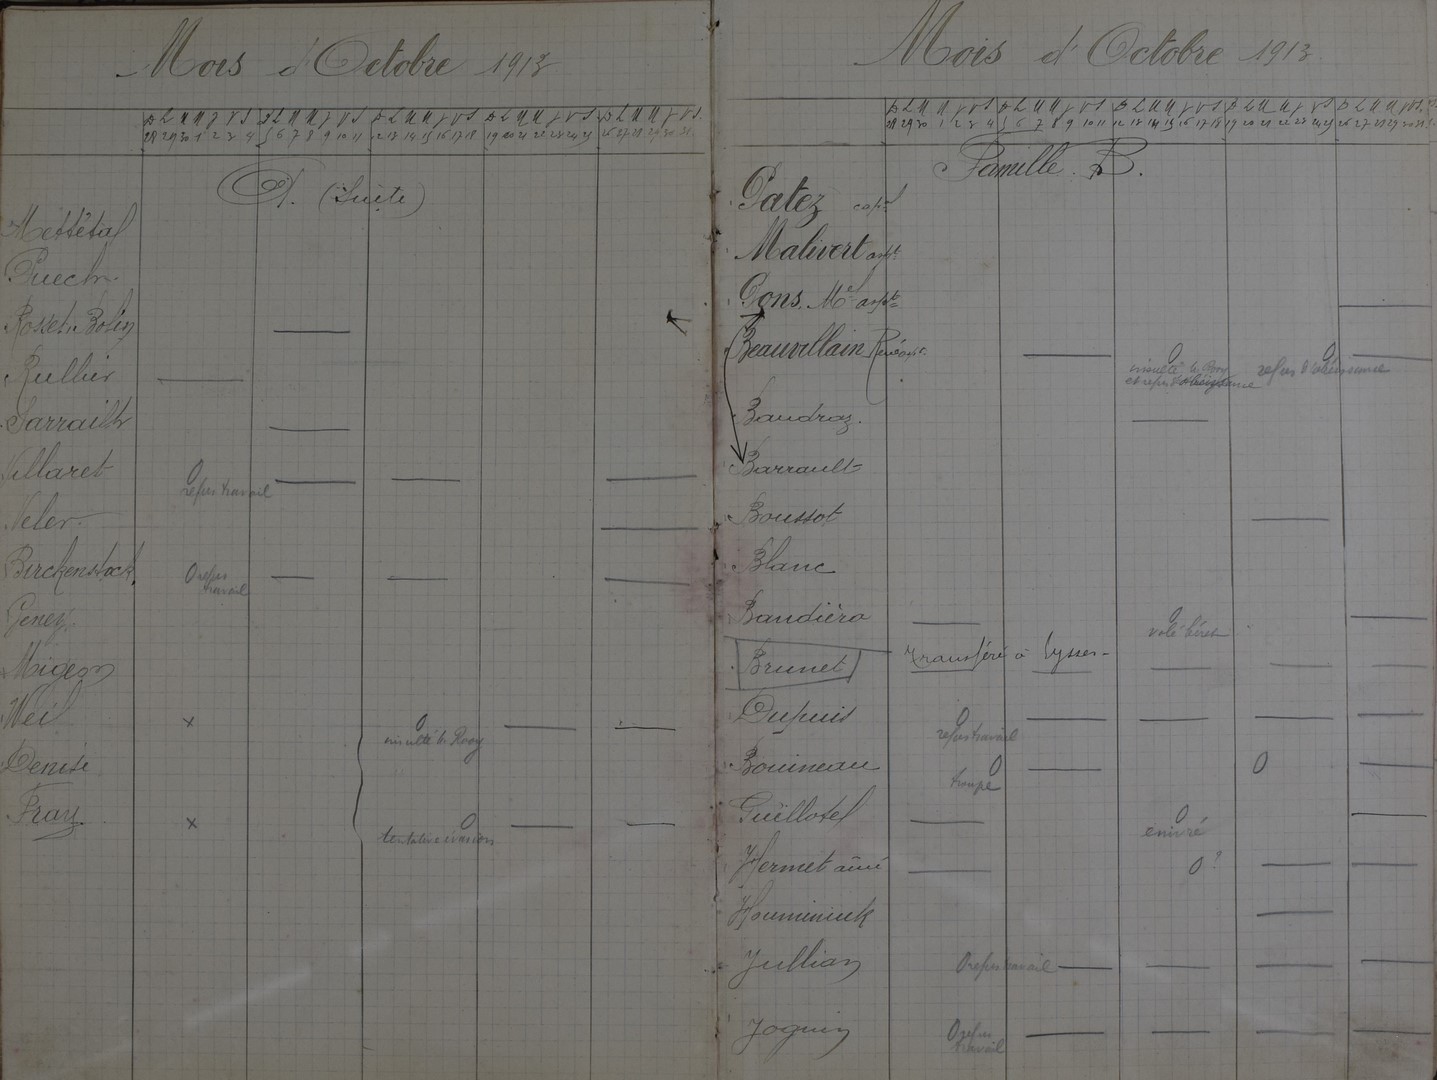 Mois d'Octobre 1913
D L M M J V S D L M M J V S D L M M J V S D L M M J V S D L M M J V S
28 29 30 1 2 3 4 5 6 7 8 9 10 11 12 13 14 15 16 17 18 19 20 21 22 23 24 25 26 27 28 29 30 31
A. (Suite)
Mettétal
Puech
Rosset-Bolin
Rullier
Sarrailh
Villaret 0
refus travail
Veler
Birckenstock 0 refus
travail
Genez
Migeon
Weil x 0
insulté le Rooy
Denisi
Fray x 0
tentative évasion
Mois d'Octobre 1913
D L M M J V S D L M M J V S D L M M J V S D L M M J V S D L M M J V S
28 29 30 1 2 3 4 5 6 7 8 9 10 11 12 13 14 15 16 17 18 19 20 21 22 23 24 25 26 27 28 29 30 31
Famille B.
Patez capl
Malivert aspt
Gons Mel aspt
Beauvillain René 0 0
insulté le Rooy refus d'obéissance
et refus d'obéissance
Baudraz
Barrault
Boussot
Blanc
Baudiéra 0
volé béret
Brunet transféré à Eysses
Dupuis 0
refus travail
Bouineau 0 0
trompe
Guillotel 0
enivré
Hermet aîné 0?
Houminiuk
Jullian 0 refus travail
Joguin 0 refus
travail